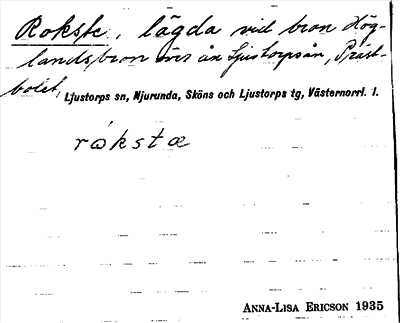 Rokste, lägda vid bron Hög-
landsbron över ån Ljustorpsån, Präst-
bolet,
Ljustorps sn, Njurunda, Sköns och Ljustorps tg, Västernorrl. l.
rɷ́kstæ
ANNA-LISA ERICSON 1935